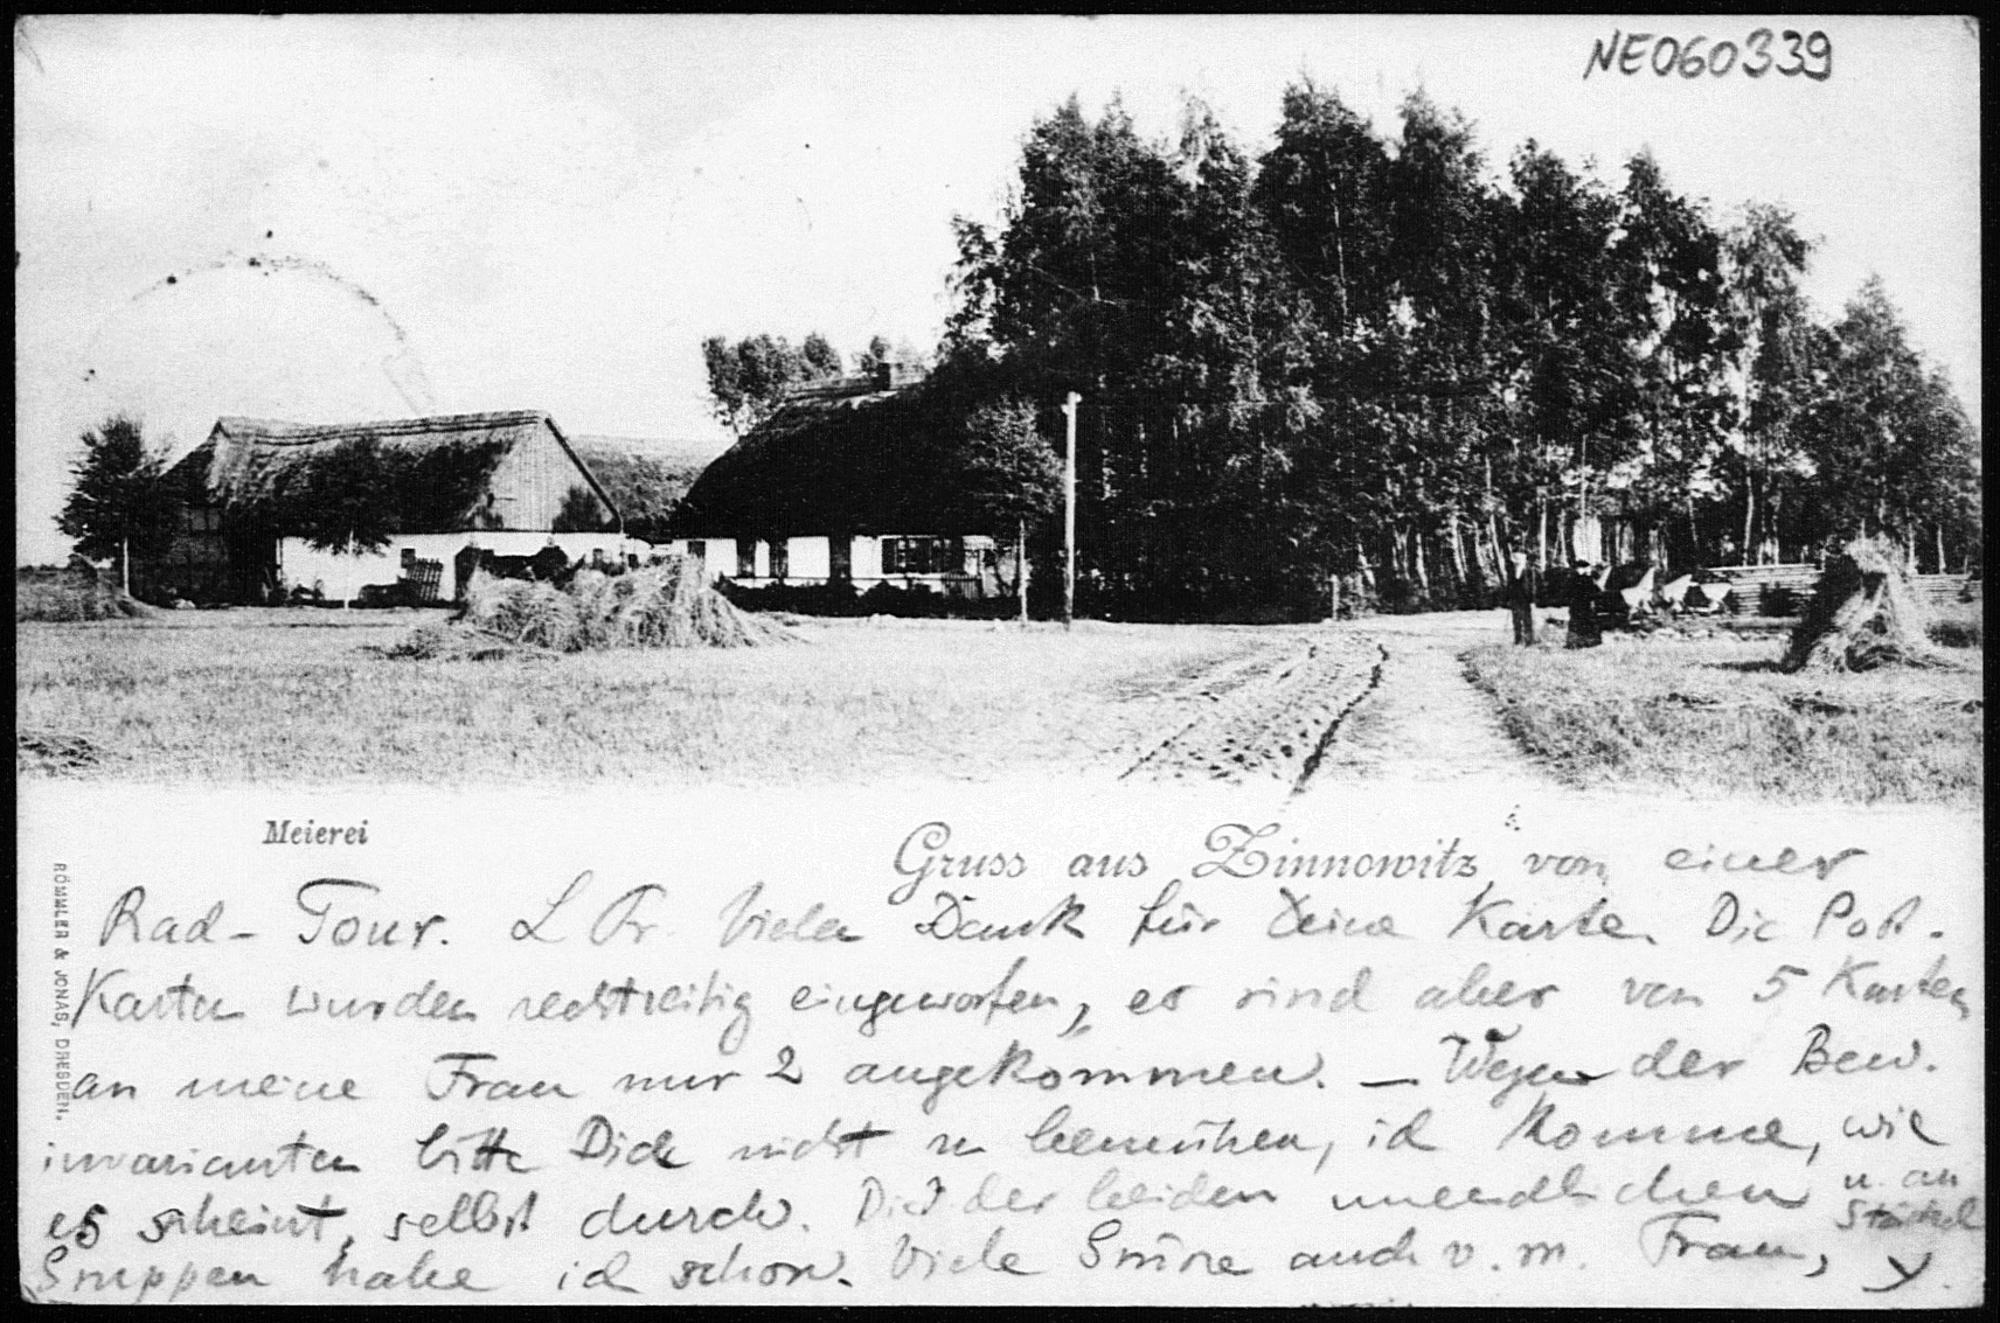 NE060339
Meierei
Gruss aus Zinnowitz, von einer
RÖMMLER & JONAS, DRESDEN.
Rad-Tour. L Fr. Vielen Dank für Deine Karte. Die Post-
Karten wurden rechtzeitig eingeworfen, es sind aber von 5 Karten
an meine Frau nur 2 angekommen. — Wegen der Bew.
invarianten bitte Dich nicht zu bemühen, ich komme, wie
es scheint, selbst durch. Die der beiden unendlichen
Gruppen habe ich schon. Viele Grüsse auch v. m. Frau,
u. an
Stäckel